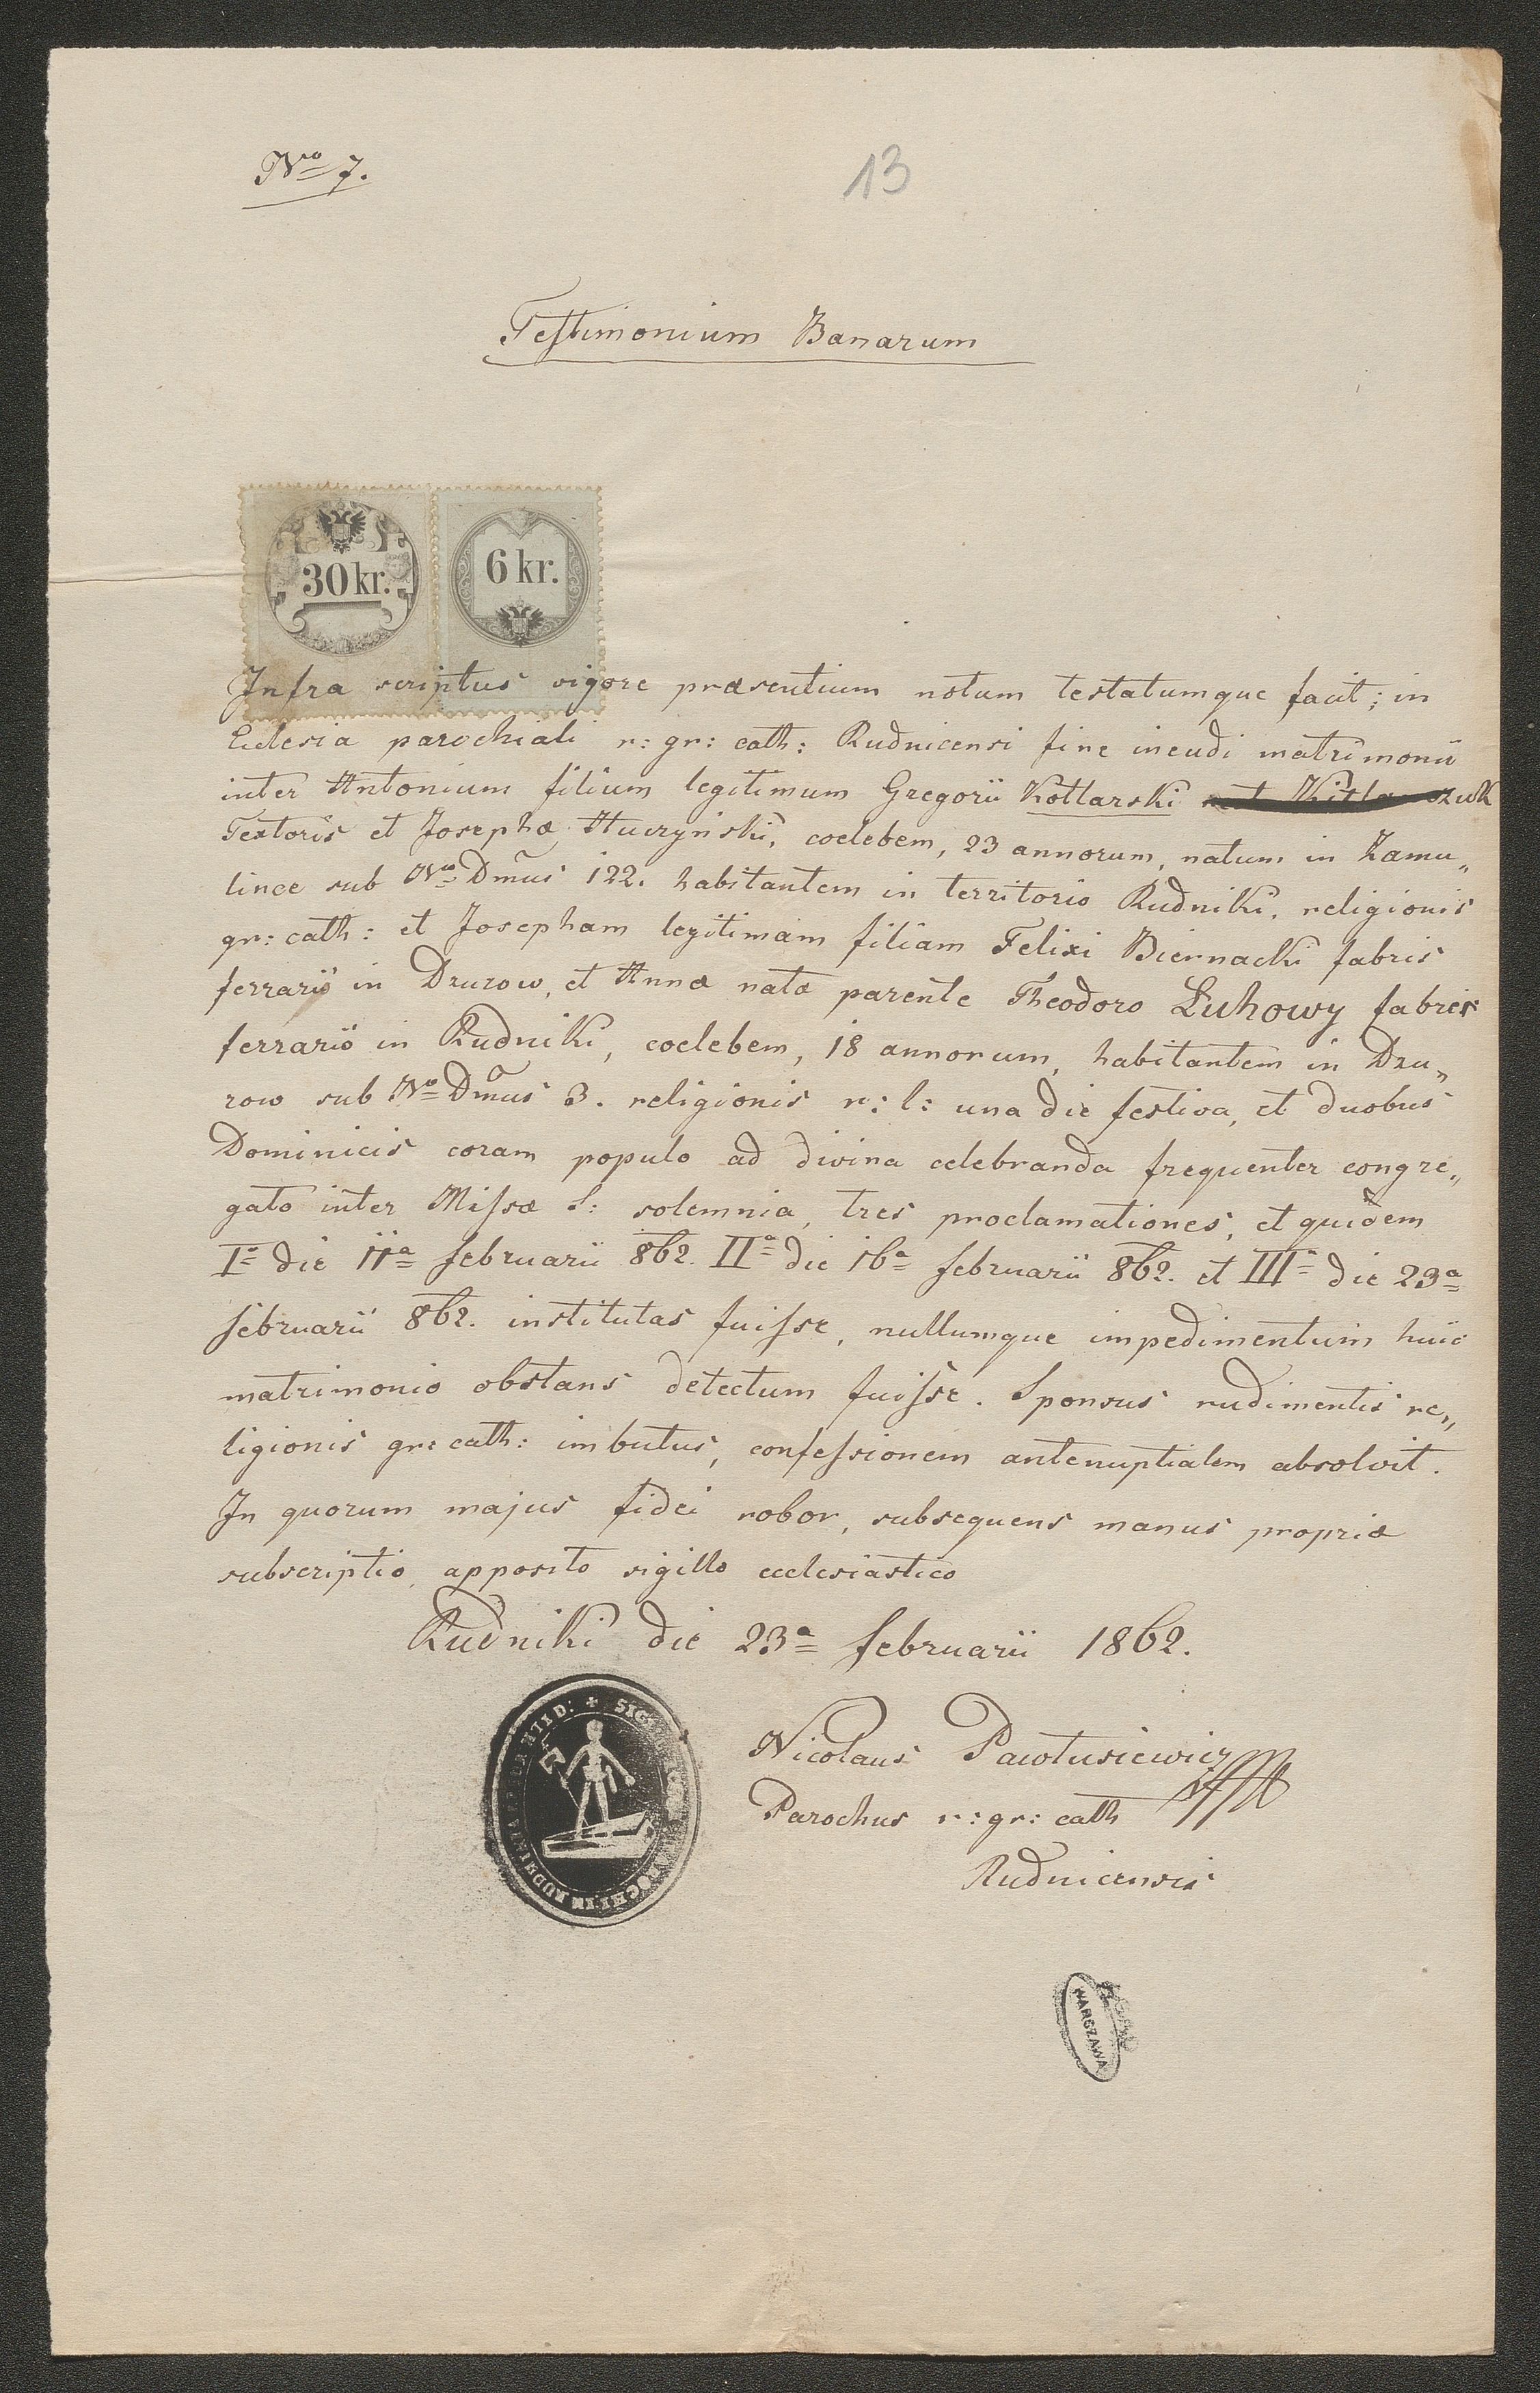 Nro 7.
13
Testimonium Banarum
30 kr.
6 kr.
Infra scriptus vigore præsentium notum testatumque facit; in
Eclesia parochiali r: gr: cath: Rudnicensi fine ineudi matrimonii
inter Antonium filium legitimum Gregorii Kotlarski
Textoris et Josephæ Huczyński, coelebem, 23 annorum, natum in Zamu„
lince sub Nro Dmûs 122. habitantem in territorio Rudniki, religionis
gr: cath: et Josepham legitimam filiam Felixi Biernacki fabris
ferrarii in Druzow, et Annæ natæ parente Theodoro Łuhowy fabris
ferrarii in Rudniki, coelebem, 18 annorum, habitantem in Dzu„
row sub Nro Dmûs 3. religionis r: l: una die festiva, et duobus
Dominicis coram populo ad divina celebranda frequenter congre„
gato inter Missæ S: solemnia, tres proclamationes, et quidem
Ia die 11a februarii 862. IIa die 16a februarii 862. et IIIa die 23a
februarii 862. institutas fuisse, nullumque impedimentum huic
matrimonio obstans detectum fuisse. Sponsus rudimentis re„
ligionis gr: cath: imbutus, confessionem antenuptialem absolvit.
In quorum majus fidei robor, subsequens manus propriæ
subscriptio, apposito sigillo ecclesiastico
Rudniki die 23a februarii 1862.
Nicolaus Pawłusiewicz
Parochus r: gr: cath
Rudnicensis
WARSZAWA